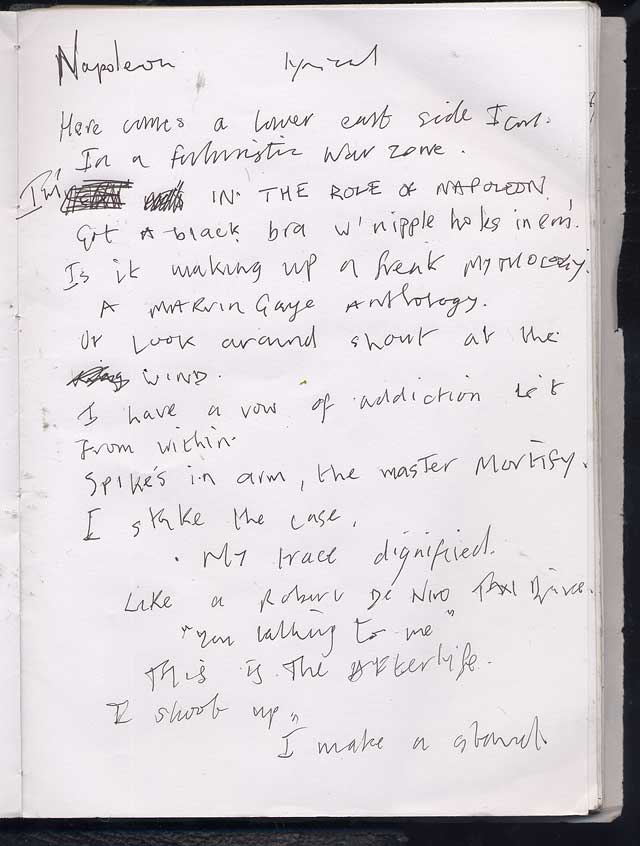 Napoleon lyrical
Here comes a lower east side Icon.
In a futuristic war zone.
I'm IN THE ROLE OF NAPOLEON
Got A black bra w' nipple holes in em.
Is it making up a freak MYTHOLOGY.
A MARVIN Gaye Anthology.
Or Look around shout at the
WIND.
I have a vow of addiction
From within.
Spike's in arm, the master Mortify.
I the case,
My trace dignified.
Like a Robert De Niro TAXI
"You talking to me"
This is The AFterlife.
I shoot up,
I make a stand.